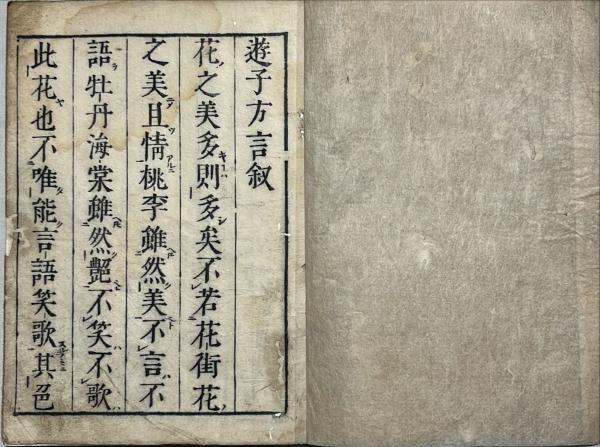 遊子方言叙
花之美多則多矣不若花街花
之美且情桃李雖然美不言不
語牡丹海棠雖然艷不笑不歌
此花也不唯能言語笑歌其色